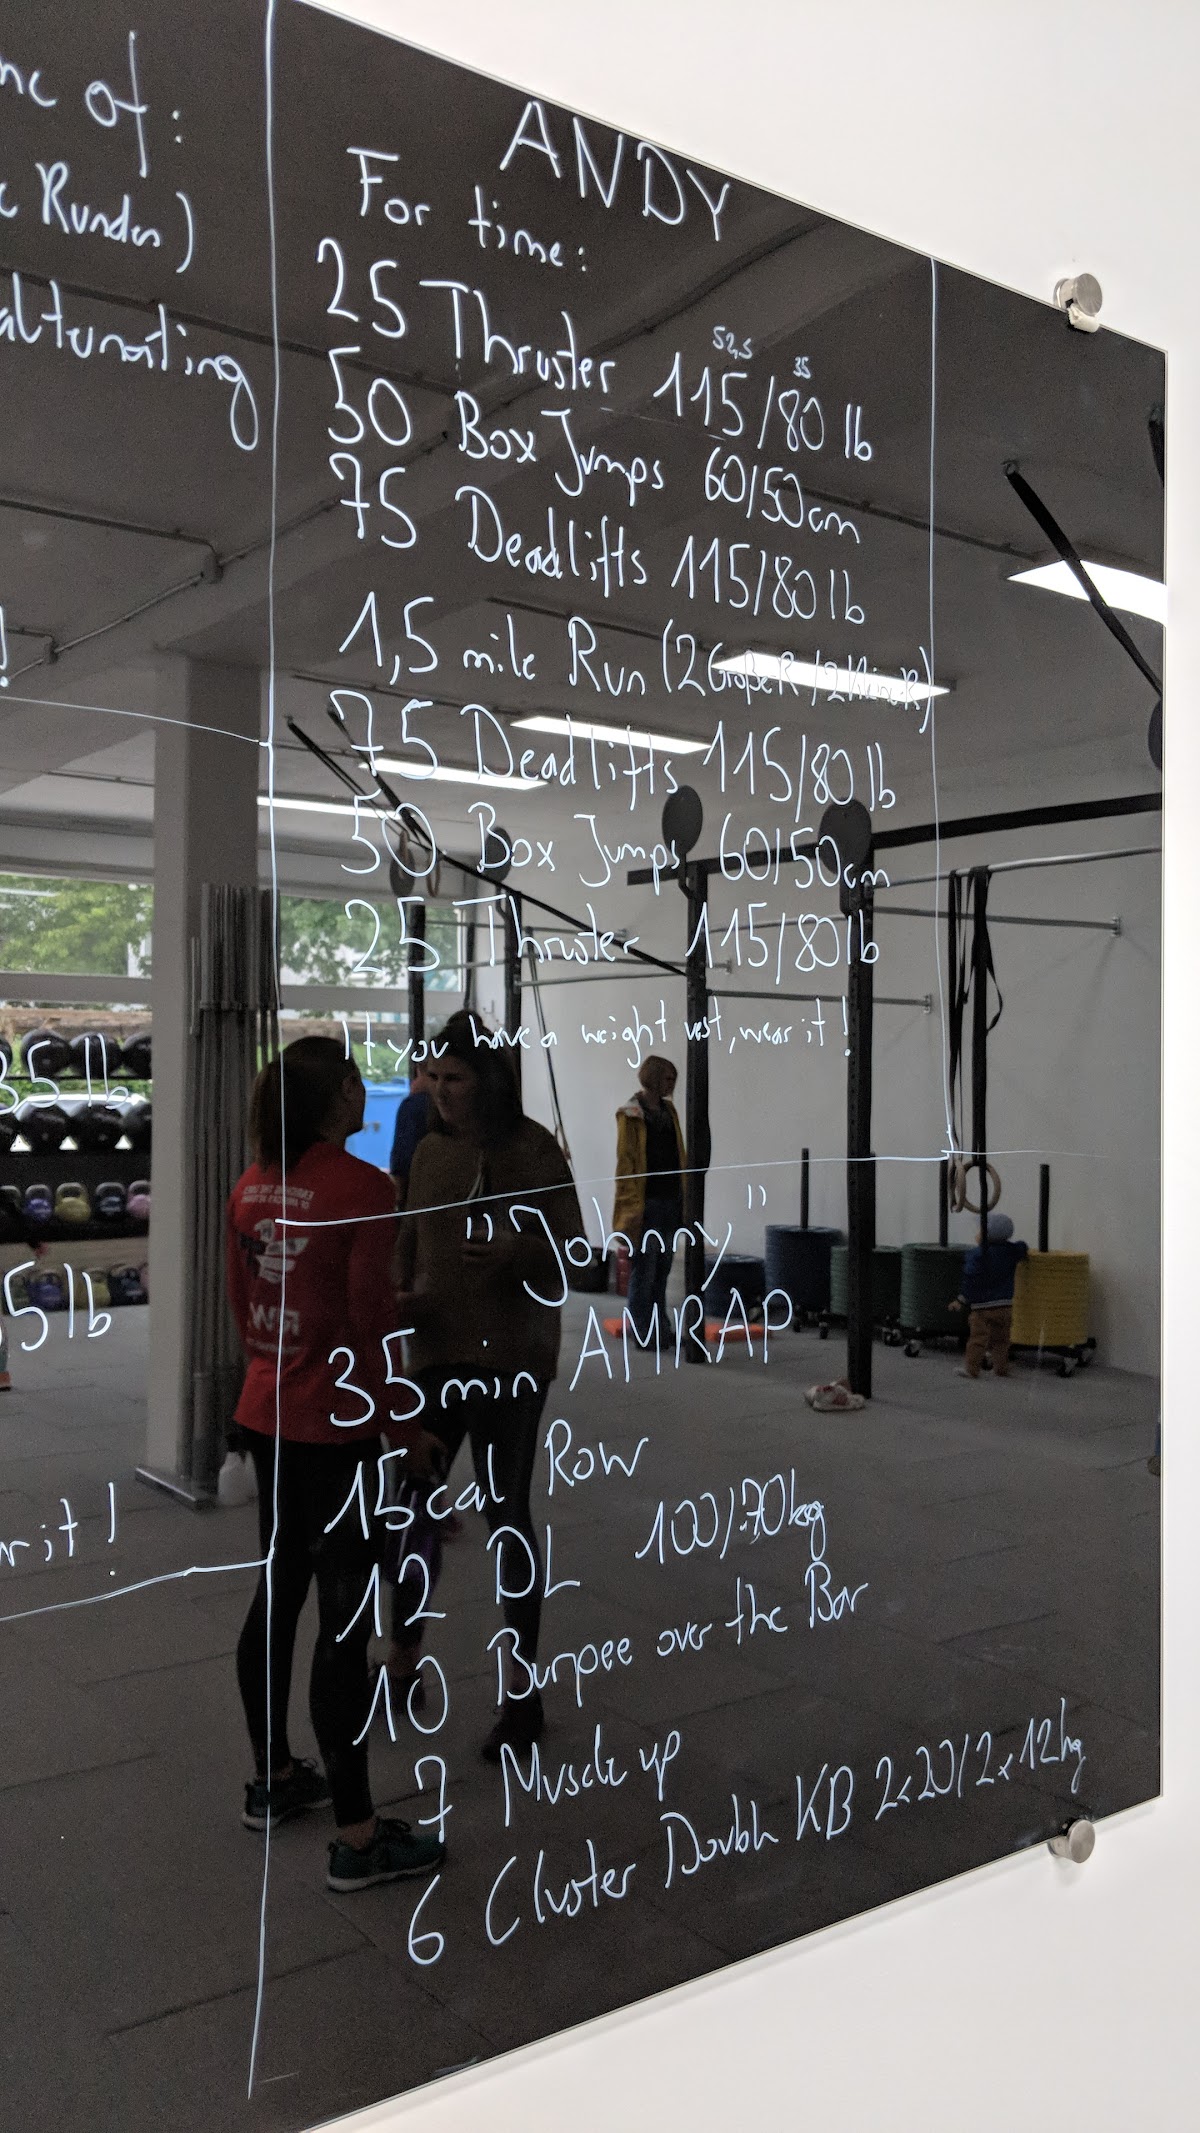 of:
Runden)
alternating
!
35 lb
5 lb
it!
ANDY
For time:
52,5 35
25 Thruster 115/80 lb
50 Box Jumps 60/50cm
75 Deadlifts 115/80 lb
1,5 mile Run (2 Große R / 2 Kleine R)
75 Deadlifts 115/80 lb
50 Box Jumps 60/50cm
25 Thruster 115/80 lb
If you have a weight vest, wear it!
"Johnny"
35 min AMRAP
15 cal Row
12 DL 100/70kg
10 Burpee over the Bar
7 Muscle up
6 Cluster Double KB 2x20/2x12kg